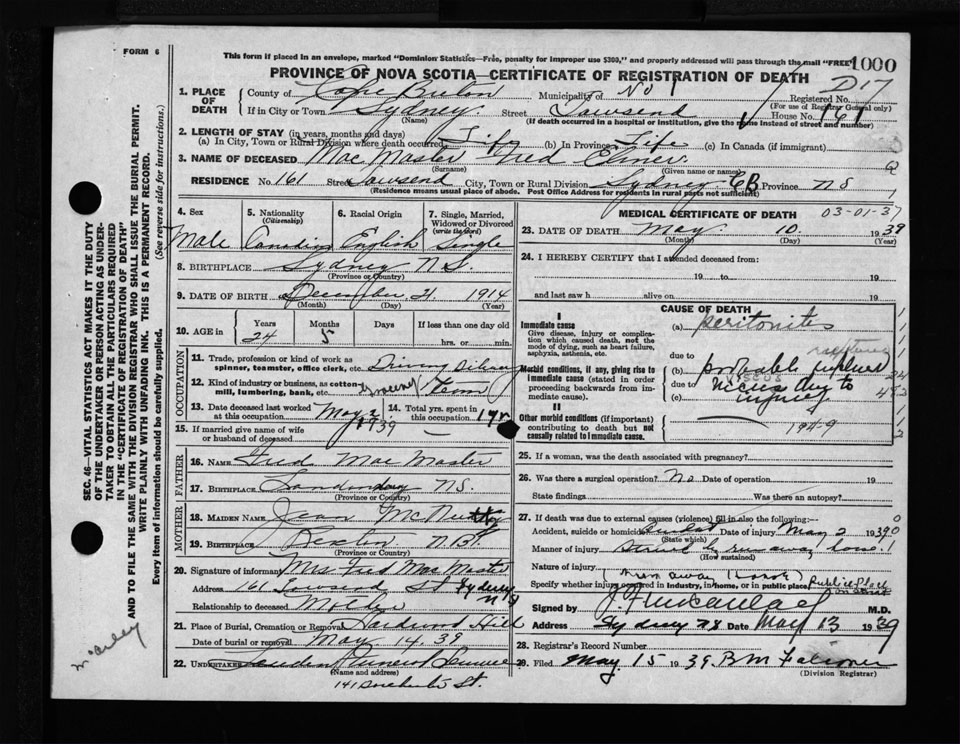 FORM 6
This form if placed in an envelope, marked "Dominion Statistics—Free, penalty for improper use $300," and properly addressed will pass through the mail "FREE" 1000
PROVINCE OF NOVA SCOTIA—CERTIFICATE OF REGISTRATION OF DEATH
D17
1. PLACE OF DEATH
County of Cape Breton Municipality of No 1 Registered No.
(For use of Registrar General only)
If in City or Town Sydney (Name) Street Townsend House No. 161
(If death occurred in a hospital or institution, give the name instead of street and number)
2. LENGTH OF STAY (in years, months and days)
(a) In City, Town or Rural Division where death occurred Life (b) In Province Life (c) In Canada (if immigrant)
3. NAME OF DECEASED Mac Master Fred Elmer
(Surname) (Given name or names)
RESIDENCE No. 161 Street Townsend City, Town or Rural Division Sydney CB Province NS
(Residence means usual place of abode. Post Office Address for residents in rural parts not sufficient)
4. Sex Male
5. Nationality (Citizenship) Canadian
6. Racial Origin English
7. Single, Married, Widowed or Divorced (write the word) Single
8. BIRTHPLACE Sydney N.S.
(Province or Country)
9. DATE OF BIRTH December 21 1914
(Month) (Day) (Year)
10. AGE in Years Months Days If less than one day old
24 5 hrs. or min.
OCCUPATION
11. Trade, profession or kind of work as spinner, teamster, office clerk, etc. Driving Delivery
12. Kind of industry or business, as cotton mill, lumbering, bank, etc. Grocery Team
13. Date deceased last worked at this occupation May 2 1939
14. Total yrs. spent in this occupation 1 yr.
15. If married give name of wife or husband of deceased —
FATHER
16. NAME Fred Mac Master
17. BIRTHPLACE N.S.
(Province or Country)
MOTHER
18. MAIDEN NAME Jean
19. BIRTHPLACE Rexton N.B.
(Province or Country)
20. Signature of informant Mrs Fred Mac Master
Address 161 Townsend St Sydney NS
Relationship to deceased Mother
21. Place of Burial, Cremation or Removal Hardwood Hill
Date of burial or removal May 14, 39
22. UNDERTAKER Funeral Service
(Name and address)
141 Dorchester St.
MEDICAL CERTIFICATE OF DEATH 03-01-37
23. DATE OF DEATH May 10 1939
(Month) (Day) (Year)
24. I HEREBY CERTIFY that I attended deceased from:
19 to 19
and last saw h alive on 19
CAUSE OF DEATH
I
Immediate cause
Give disease, injury or complication which caused death, not the mode of dying, such as heart failure, asphyxia, asthenia, etc.
(a) peritonitis
due to
Morbid conditions, if any, giving rise to immediate cause (stated in order proceeding backwards from immediate cause).
(b) probable ruptured
due to viscus due to
(c) injury
II
Other morbid conditions (if important) contributing to death but not causally related to immediate cause.
194-9
25. If a woman, was the death associated with pregnancy?
26. Was there a surgical operation? No Date of operation 19
State findings Was there an autopsy?
27. If death was due to external causes (violence) fill in also the following:—
Accident, suicide or homicide? Date of injury May 2 1939
(State which)
Manner of injury Struck by runaway horse
(How sustained)
Nature of injury
(run away horse)
Specify whether injury occurred in industry, in home, or in public place Public Place on street
Signed by M.D.
Address Sydney NS Date May 13 1939
28. Registrar's Record Number
29. Filed May 15 1939 B M Falconer
(Division Registrar)
SEC. 46—VITAL STATISTICS ACT MAKES IT THE DUTY OF THE UNDERTAKER OR PERSON ACTING AS UNDERTAKER TO OBTAIN ALL THE PARTICULARS REQUIRED IN THE "CERTIFICATE OF REGISTRATION OF DEATH"
AND TO FILE THE SAME WITH THE DIVISION REGISTRAR WHO SHALL ISSUE THE BURIAL PERMIT.
WRITE PLAINLY WITH UNFADING INK. THIS IS A PERMANENT RECORD.
Every item of information should be carefully supplied. (See reverse side for instructions.)